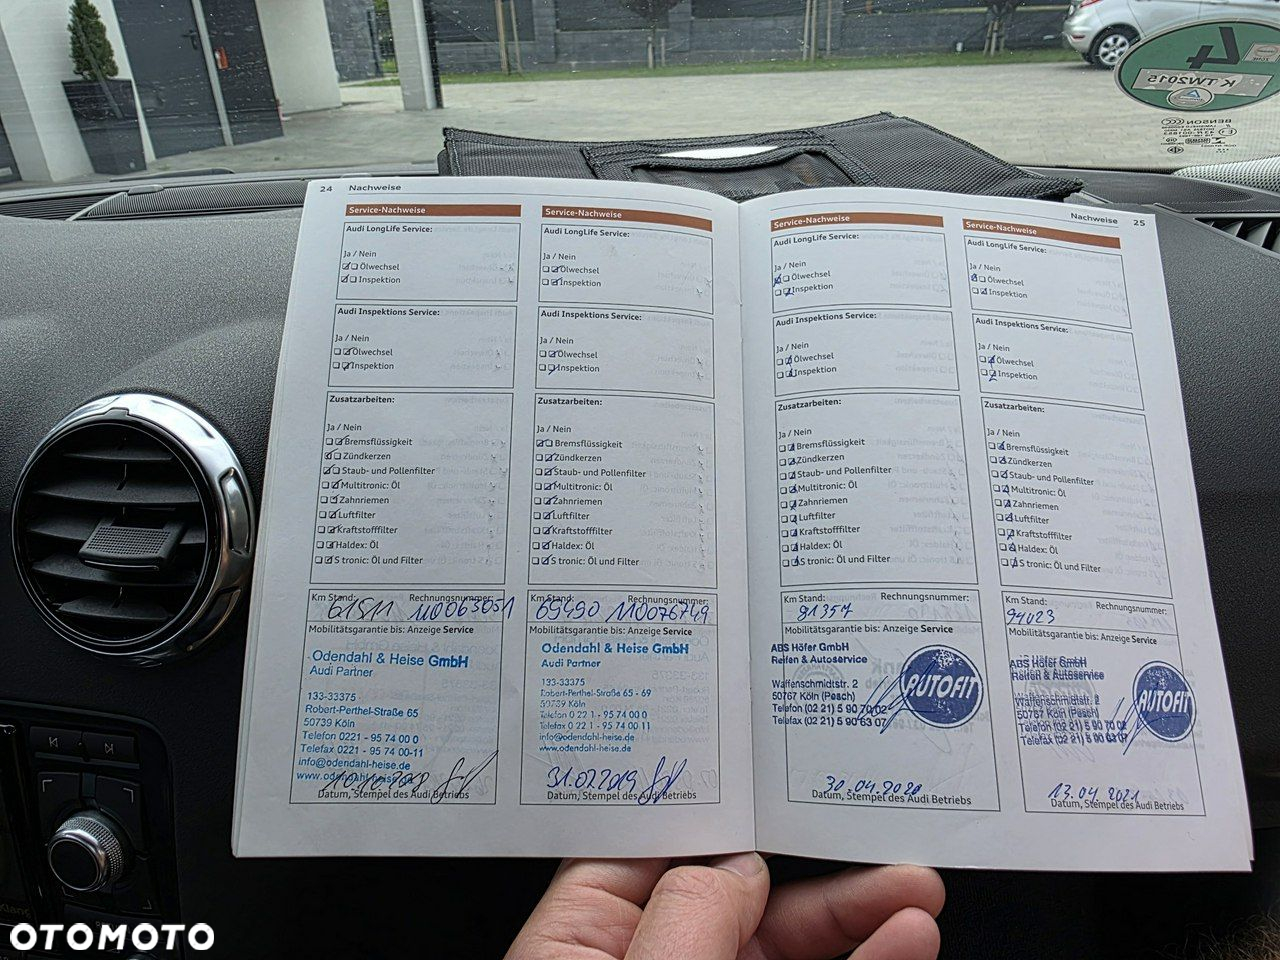 4
K TW2015
BENSON
24 Nachweise
Service-Nachweise
Audi LongLife Service:
Ja / Nein
Ölwechsel
Inspektion
Audi Inspektions Service:
Ja / Nein
Ölwechsel
Inspektion
Zusatzarbeiten:
Ja / Nein
Bremsflüssigkeit
Zündkerzen
Staub- und Pollenfilter
Multitronic: Öl
Zahnriemen
Luftfilter
Kraftstofffilter
Haldex: Öl
S tronic: Öl und Filter
Km Stand: Rechnungsnummer:
61511 110063051
Mobilitätsgarantie bis: Anzeige Service
Odendahl & Heise GmbH
Audi Partner
133-33375
Robert-Perthel-Straße 65
50739 Köln
Telefon 0221 - 95 74 00 0
Telefax 0221 - 95 74 00-11
info@odendahl-heise.de
www.odendahl-heise.de
Datum, Stempel des Audi Betriebs
Service-Nachweise
Audi LongLife Service:
Ja / Nein
Ölwechsel
Inspektion
Audi Inspektions Service:
Ja / Nein
Ölwechsel
Inspektion
Zusatzarbeiten:
Ja / Nein
Bremsflüssigkeit
Zündkerzen
Staub- und Pollenfilter
Multitronic: Öl
Zahnriemen
Luftfilter
Kraftstofffilter
Haldex: Öl
S tronic: Öl und Filter
Km Stand: Rechnungsnummer:
69490 110076749
Mobilitätsgarantie bis: Anzeige Service
Odendahl & Heise GmbH
Audi Partner
133-33375
Robert-Perthel-Straße 65 - 69
50739 Köln
Telefon 0 22 1 - 95 74 00 0
Telefax 0 22 1 - 95 74 00-11
info@odendahl-heise.de
www.odendahl-heise.de
31.07.2019
Datum, Stempel des Audi Betriebs
Nachweise 25
Service-Nachweise
Audi LongLife Service:
Ja / Nein
Ölwechsel
Inspektion
Audi Inspektions Service:
Ja / Nein
Ölwechsel
Inspektion
Zusatzarbeiten:
Ja / Nein
Bremsflüssigkeit
Zündkerzen
Staub- und Pollenfilter
Multitronic: Öl
Zahnriemen
Luftfilter
Kraftstofffilter
Haldex: Öl
S tronic: Öl und Filter
Km Stand: Rechnungsnummer:
81357
Mobilitätsgarantie bis: Anzeige Service
ABS Höfer GmbH
Reifen & Autoservice
Waffenschmidtstr. 2
50767 Köln (Pesch)
Telefon (02 21) 5 90 70 02
Telefax (02 21) 5 90 63 07
AUTOFIT
30.04.2020
Datum, Stempel des Audi Betriebs
Service-Nachweise
Audi LongLife Service:
Ja / Nein
Ölwechsel
Inspektion
Audi Inspektions Service:
Ja / Nein
Ölwechsel
Inspektion
Zusatzarbeiten:
Ja / Nein
Bremsflüssigkeit
Zündkerzen
Staub- und Pollenfilter
Multitronic: Öl
Zahnriemen
Luftfilter
Kraftstofffilter
Haldex: Öl
S tronic: Öl und Filter
Km Stand: Rechnungsnummer:
94023
Mobilitätsgarantie bis: Anzeige Service
ABS Höfer GmbH
Reifen & Autoservice
Waffenschmidtstr. 2
50767 Köln (Pesch)
Telefon (02 21) 5 90 70 02
Telefax (02 21) 5 90 63 07
AUTOFIT
13.04.2021
Datum, Stempel des Audi Betriebs
OTOMOTO